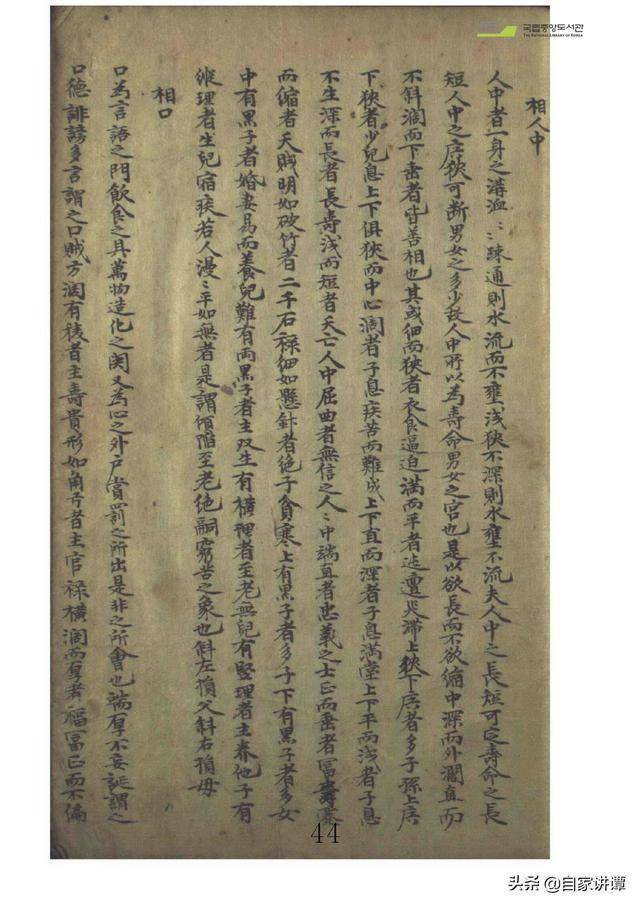 국립중앙도서관
THE NATIONAL LIBRARY OF KOREA
相人中
人中者一身之溝洫〻疎通則水流而不壅淺狹不深則水壅不流夫人中之長短可定壽命之長
短人中之広狹可断男女之多少故人中所以為壽命男女之宮也是以欲長而不欲縮中深而外濶直而
不斜濶而下垂者皆善相也其或細而狹者衣食逼迫滿而平者迍邅災滯上狹下広者多子孫上広
下狹者少兒息上下俱狹而中心濶者子息疾苦而難成上下直而深者子息滿堂上下平而淺者子息
不生深而長者長壽淺而短者夭亡人中屈曲者無信之人〻中端直者忠義之士正而垂者富壽蹇
而縮者夭賊明如破竹者二千石祿細如懸針者絶子貧寒上有黒子者多子下有黒子者多女
中有黒子者婚妻易而養兒難有両黒子者主双生有橫理者至老無兒有竪理者主養他子有
縱理者生兒宿疾若人漫〻平如無者是謂傾陷至老絶嗣窮苦之象也斜左損父斜右損母
相口
口為言語之門飲食之具萬物造化之関又為心之外戸賞罰之所出是非之所會也端厚不妄誕謂之
口德誹謗多言謂之口賊方濶有稜者主壽貴形如角弓者主官祿橫濶而厚者福富正而不偏
44
头条 @自家讲谭